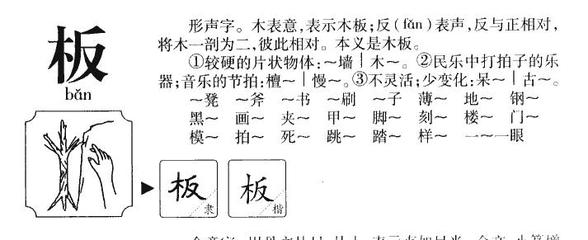 板
bǎn
形声字。木表意,表示木板;反(fǎn)表声,反与正相对,
将木一剖为二,彼此相对。本义是木板。
①较硬的片状物体:~墙|木~。②民乐中打拍子的乐
器;音乐的节拍:檀~|慢~。③不灵活;少变化:呆~|古~。
~凳 ~斧 ~书 ~刷 ~子 薄~ 地~ 钢~
黑~ 画~ 夹~ 甲~ 脚~ 刻~ 楼~ 门~
模~ 拍~ 死~ 跳~ 踏~ 样~ 一~一眼
板 隶
板 楷